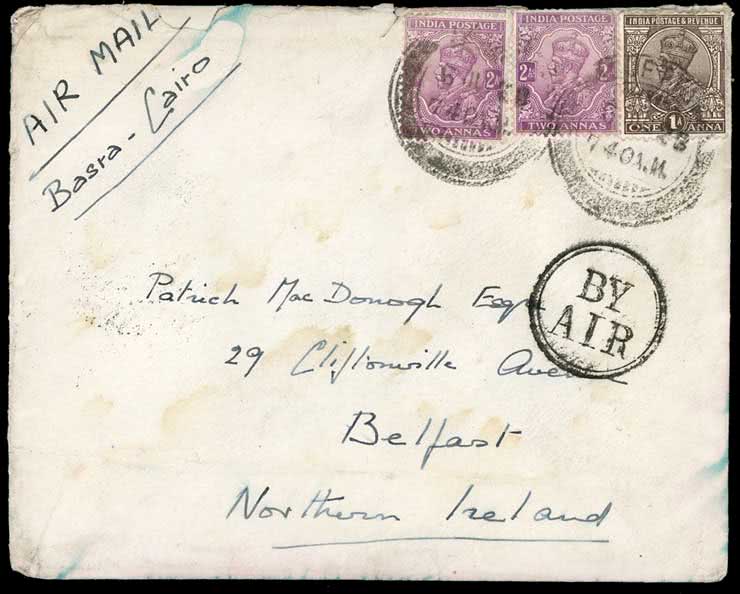 AIR MAIL
Basra - Cairo
INDIA POSTAGE
2A
TWO ANNAS
INDIA POSTAGE
2A
TWO ANNAS
INDIA POSTAGE & REVENUE
1A
ONE ANNA
7 40 A.M.
BY
AIR
Patrick Mac Donogh Esqr
29 Cliftonville Avenue
Belfast
Northern Ireland